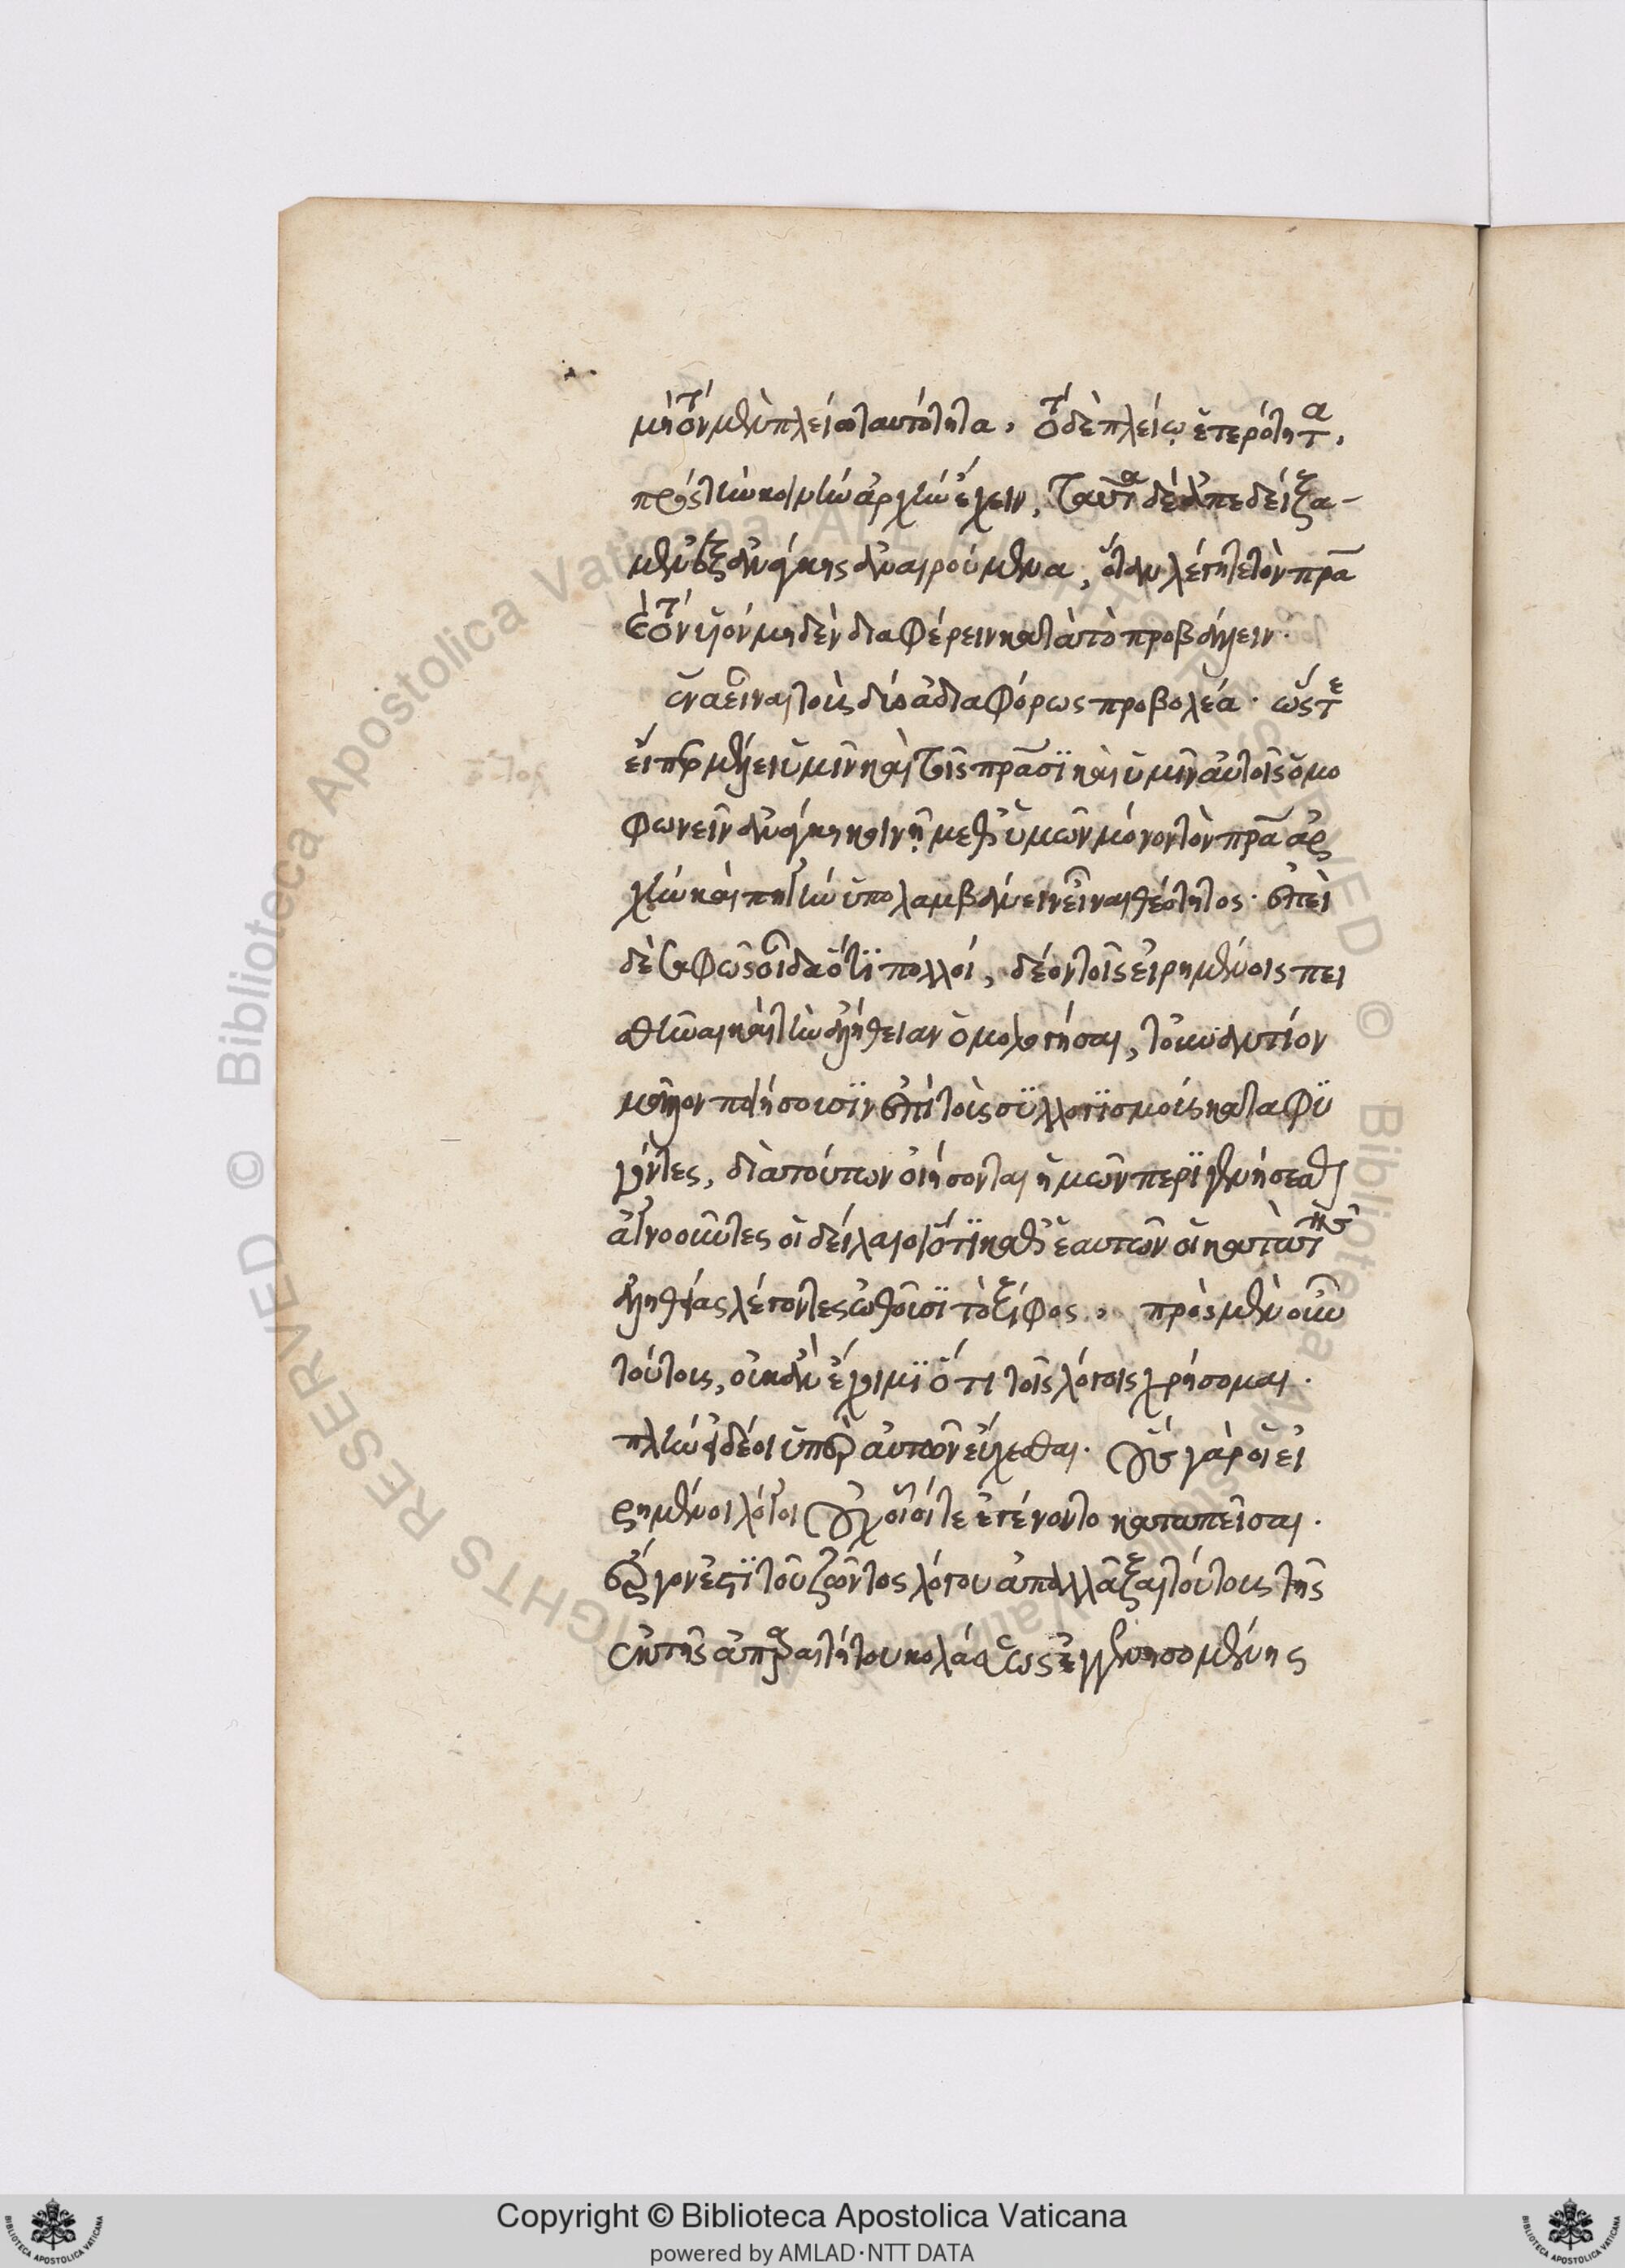 μὴ τὸν μὲν πλείω ταυτότητα, τὸν δὲ πλείω ἑτερότητα,
πρὸς τὴν κοινὴν ἀρχὴν ἔχειν, ταῦτα δὲ ἀπεδείξα-
μεν ἐξ ἀνάγκης ἀναιρούμενα, ὅταν λέγητε τὸν πρα
καὶ τὸν υἱὸν μηδὲν διαφέρειν κατὰ τὸ προβάλλειν.
ἕνα εἶναι τοὺς δύο ἀδιαφόρως προβολέα. ὥστε
εἴπερ μέλλει ὑμῖν καὶ τοῖς πρασι καὶ ὑμῖν αὐτοῖς ὁμο
φωνεῖν ἀνάγκη κοινῇ μεθ' ὑμῶν μόνον τὸν πρα ἀρ
χὴν καὶ πηγὴν ὑπολαμβάνειν εἶναι θεότητος. ἐπεὶ
δὲ σαφῶς οἶδα ὅτι πολλοί, δέον τοῖς εἰρημένοις πει
σθῆναι καὶ τὴν ἀλήθειαν ὁμολογῆσαι, τοὐναντίον
μᾶλλον ποιήσουσιν ἐπὶ τοὺς συλλογισμοὺς καταφυ
γόντες, διὰ τούτων οἰήσονται ἡμῶν περιγενήσεσθαι
ἀγνοοῦντες οἱ δείλαιοι ὅτι καθ' ἑαυτῶν οἱ κατὰ τῆς
ἀληθείας λέγοντες ὠθοῦσι τὸ ξίφος, πρὸς μὲν οὖν
τούτους, οὐκ ἂν ἔχοιμι ὅ τι τοῖς λόγοις χρήσομαι.
πλὴν εἰ δέοι ὑπὲρ αὐτῶν εὔχεσθαι. οὓς γὰρ οἱ εἰ
ρημένοι λόγοι οὐχ οἷοί τε ἐγένοντο καταπεῖσαι.
ἔργον ἐστὶ τοῦ ζῶντος λόγου ἀπαλλάξαι τούτους τῆς
ἐκ τῆς ἀπαραιτήτου κολάσεως ἐγγενησομένης